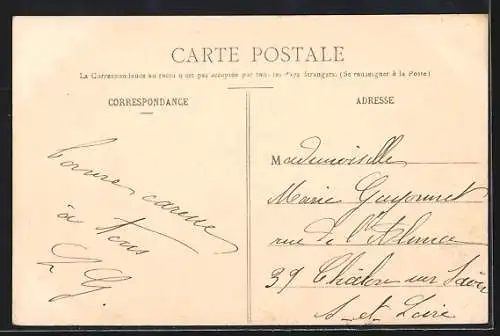 CARTE POSTALE
La Correspondance au recto n'est pas acceptée par tous les Pays étrangers. (Se renseigner à la Poste)
CORRESPONDANCE
Bonne caresse
à tous
ADRESSE
Mademoiselle
Marie Guyonnet
rue de l'Alma
39 Châlon sur Saône
S-et-Loire